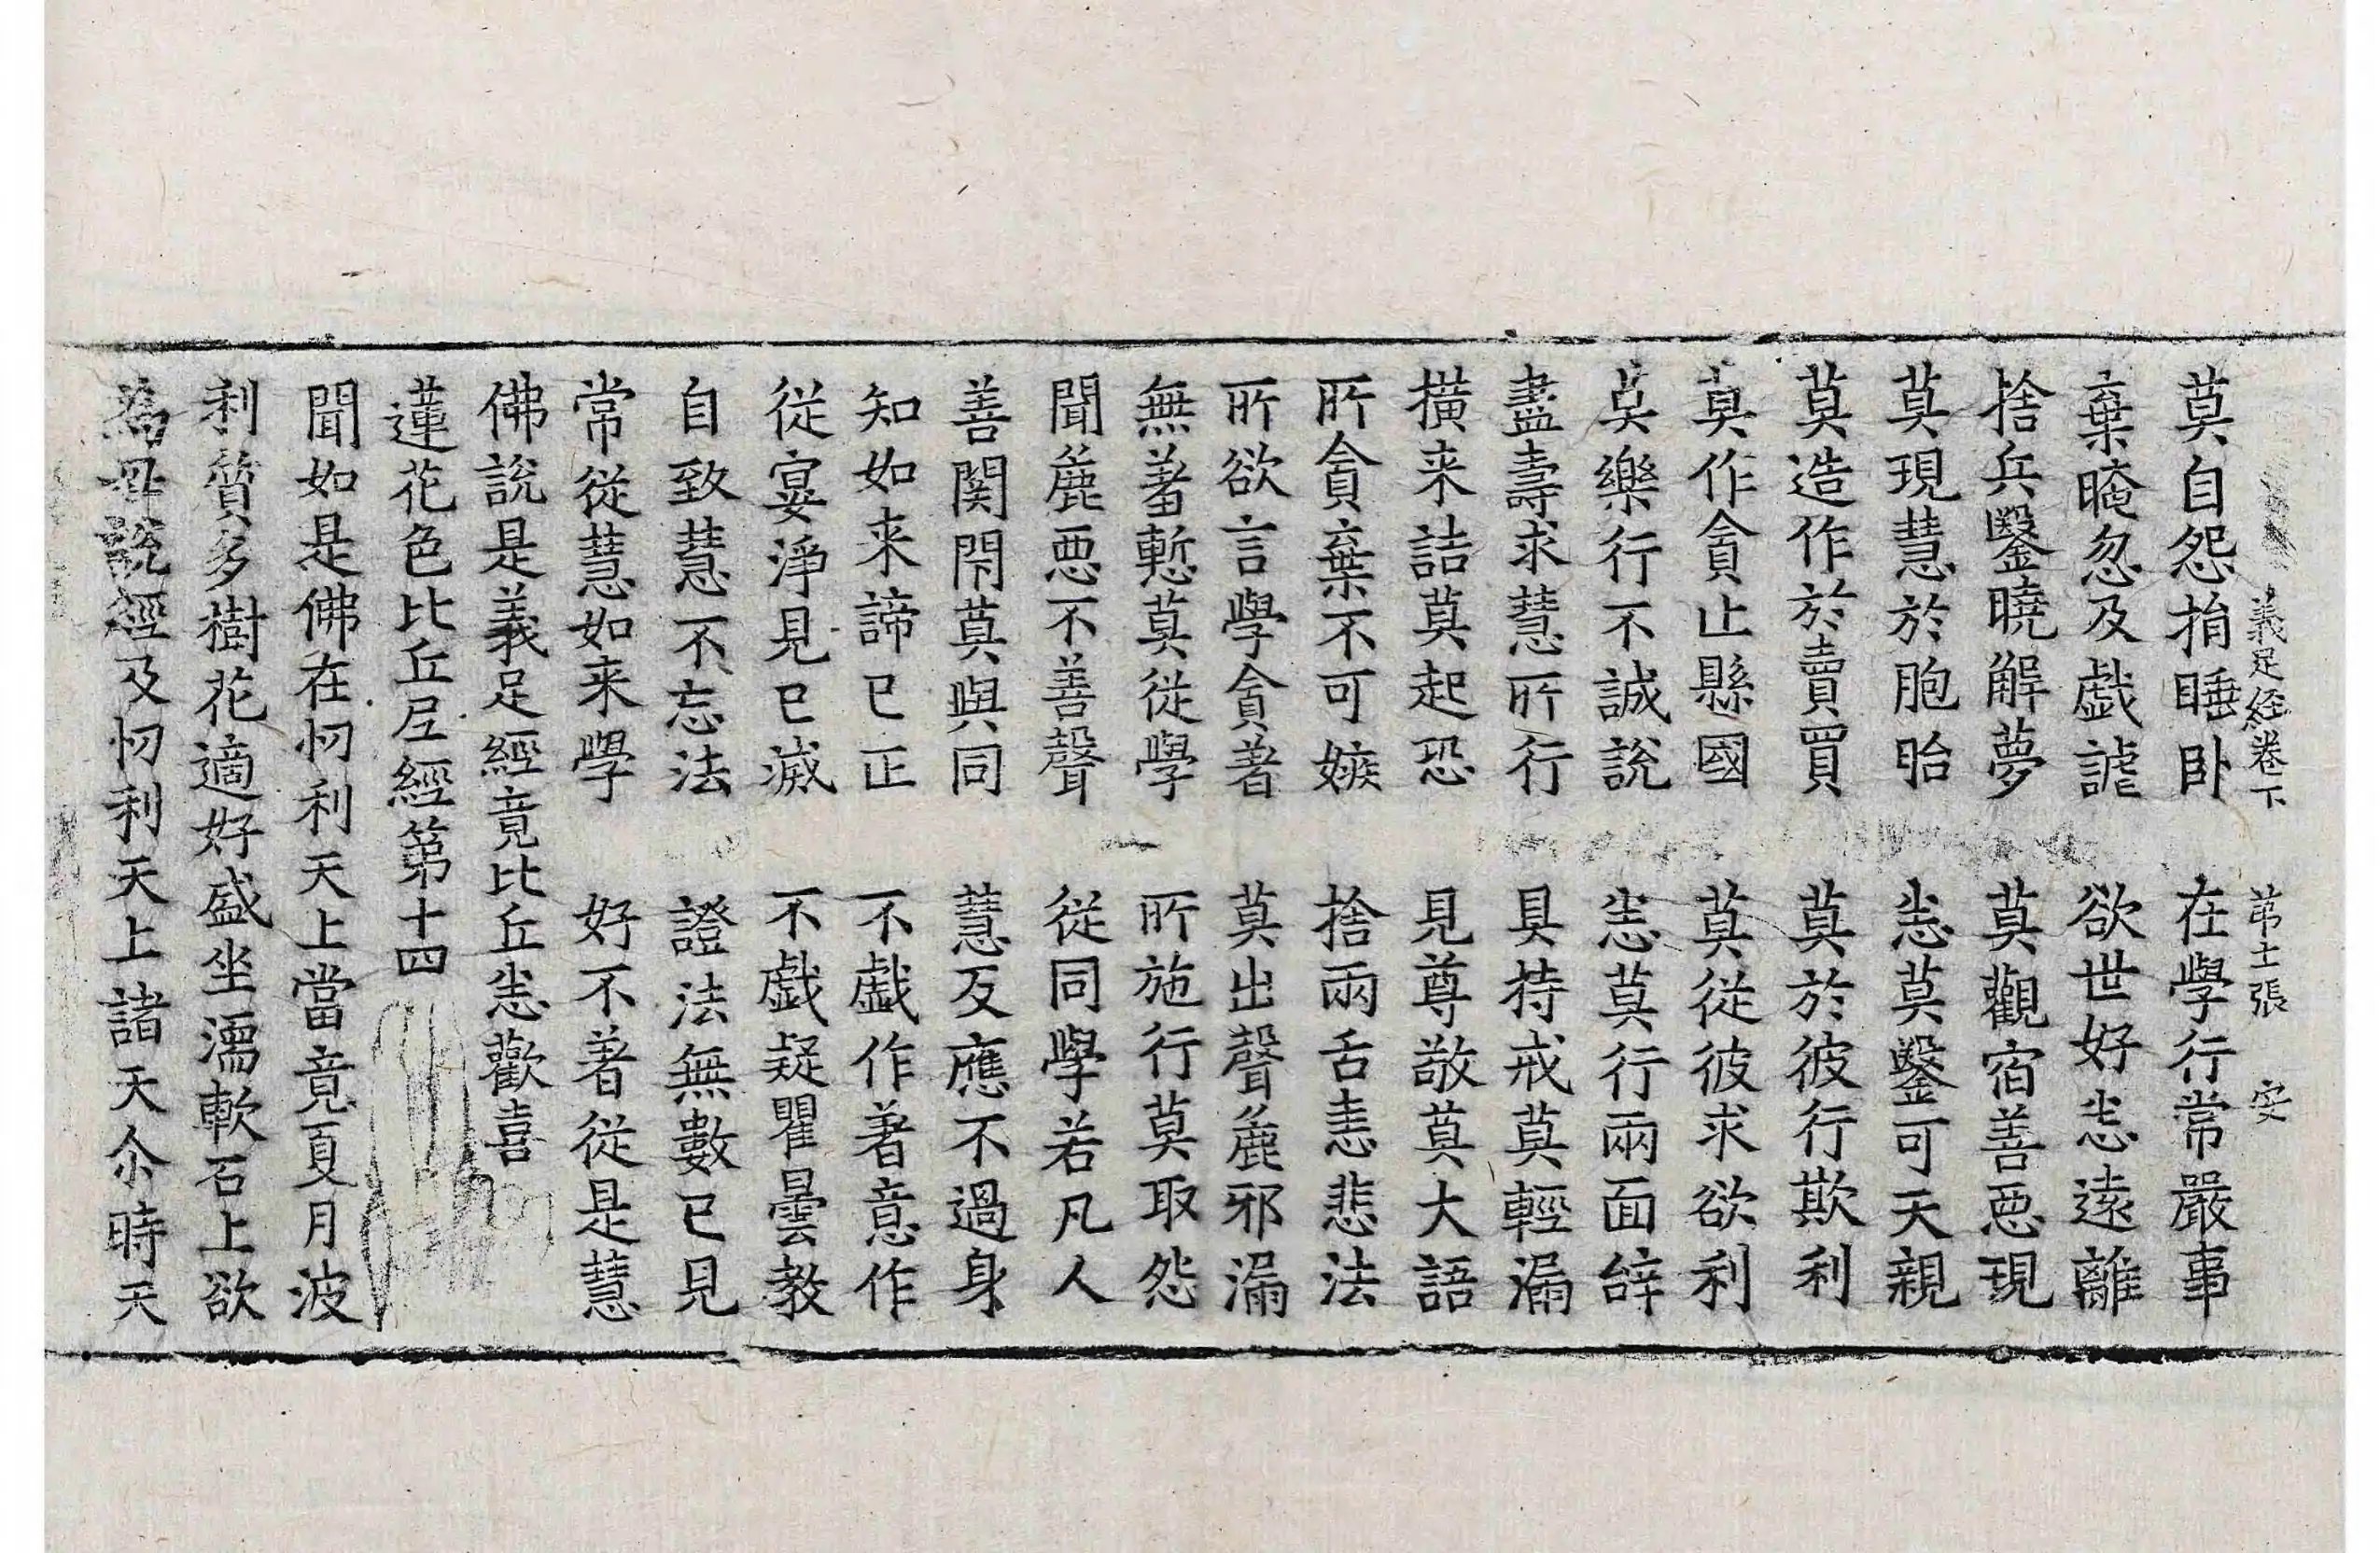 義足経卷下　苐土張　安
莫自怨捐睡卧　在學行常嚴事
棄晻忽及戯謔　欲世好恙遠離
捨兵鑿曉解夢　莫觀宿善惡現
莫現慧於胞胎　恙莫鑿可天親
莫造作於賣買　莫於彼行欺利
莫作貪止縣國　莫從彼求欲利
莫樂行不誠說　恙莫行兩面辝
盡壽求慧所行　具持戒莫輕漏
撗来詰莫起恐　見尊敬莫大語
所貪棄不可嫉　捨兩舌恚悲法
所欲言學貪著　莫出聲麁邪漏
無羞慙莫從學　所施行莫取怨
聞麁惡不善聲　從同學若凡人
善関閇莫與同　慧反應不過身
知如来諦已正　不戯作著意作
從宴淨見已滅　不戯疑瞿曇教
自致慧不忘法　證法無數已見
常從慧如来學　好不著從是慧
佛說是義足經竟比丘恙歡喜
蓮花色比丘尼經第十四
聞如是佛在忉利天上當竟夏月波
利質多樹花適好盛坐濡軟石上欲
為母說經及忉利天上諸天尒時天